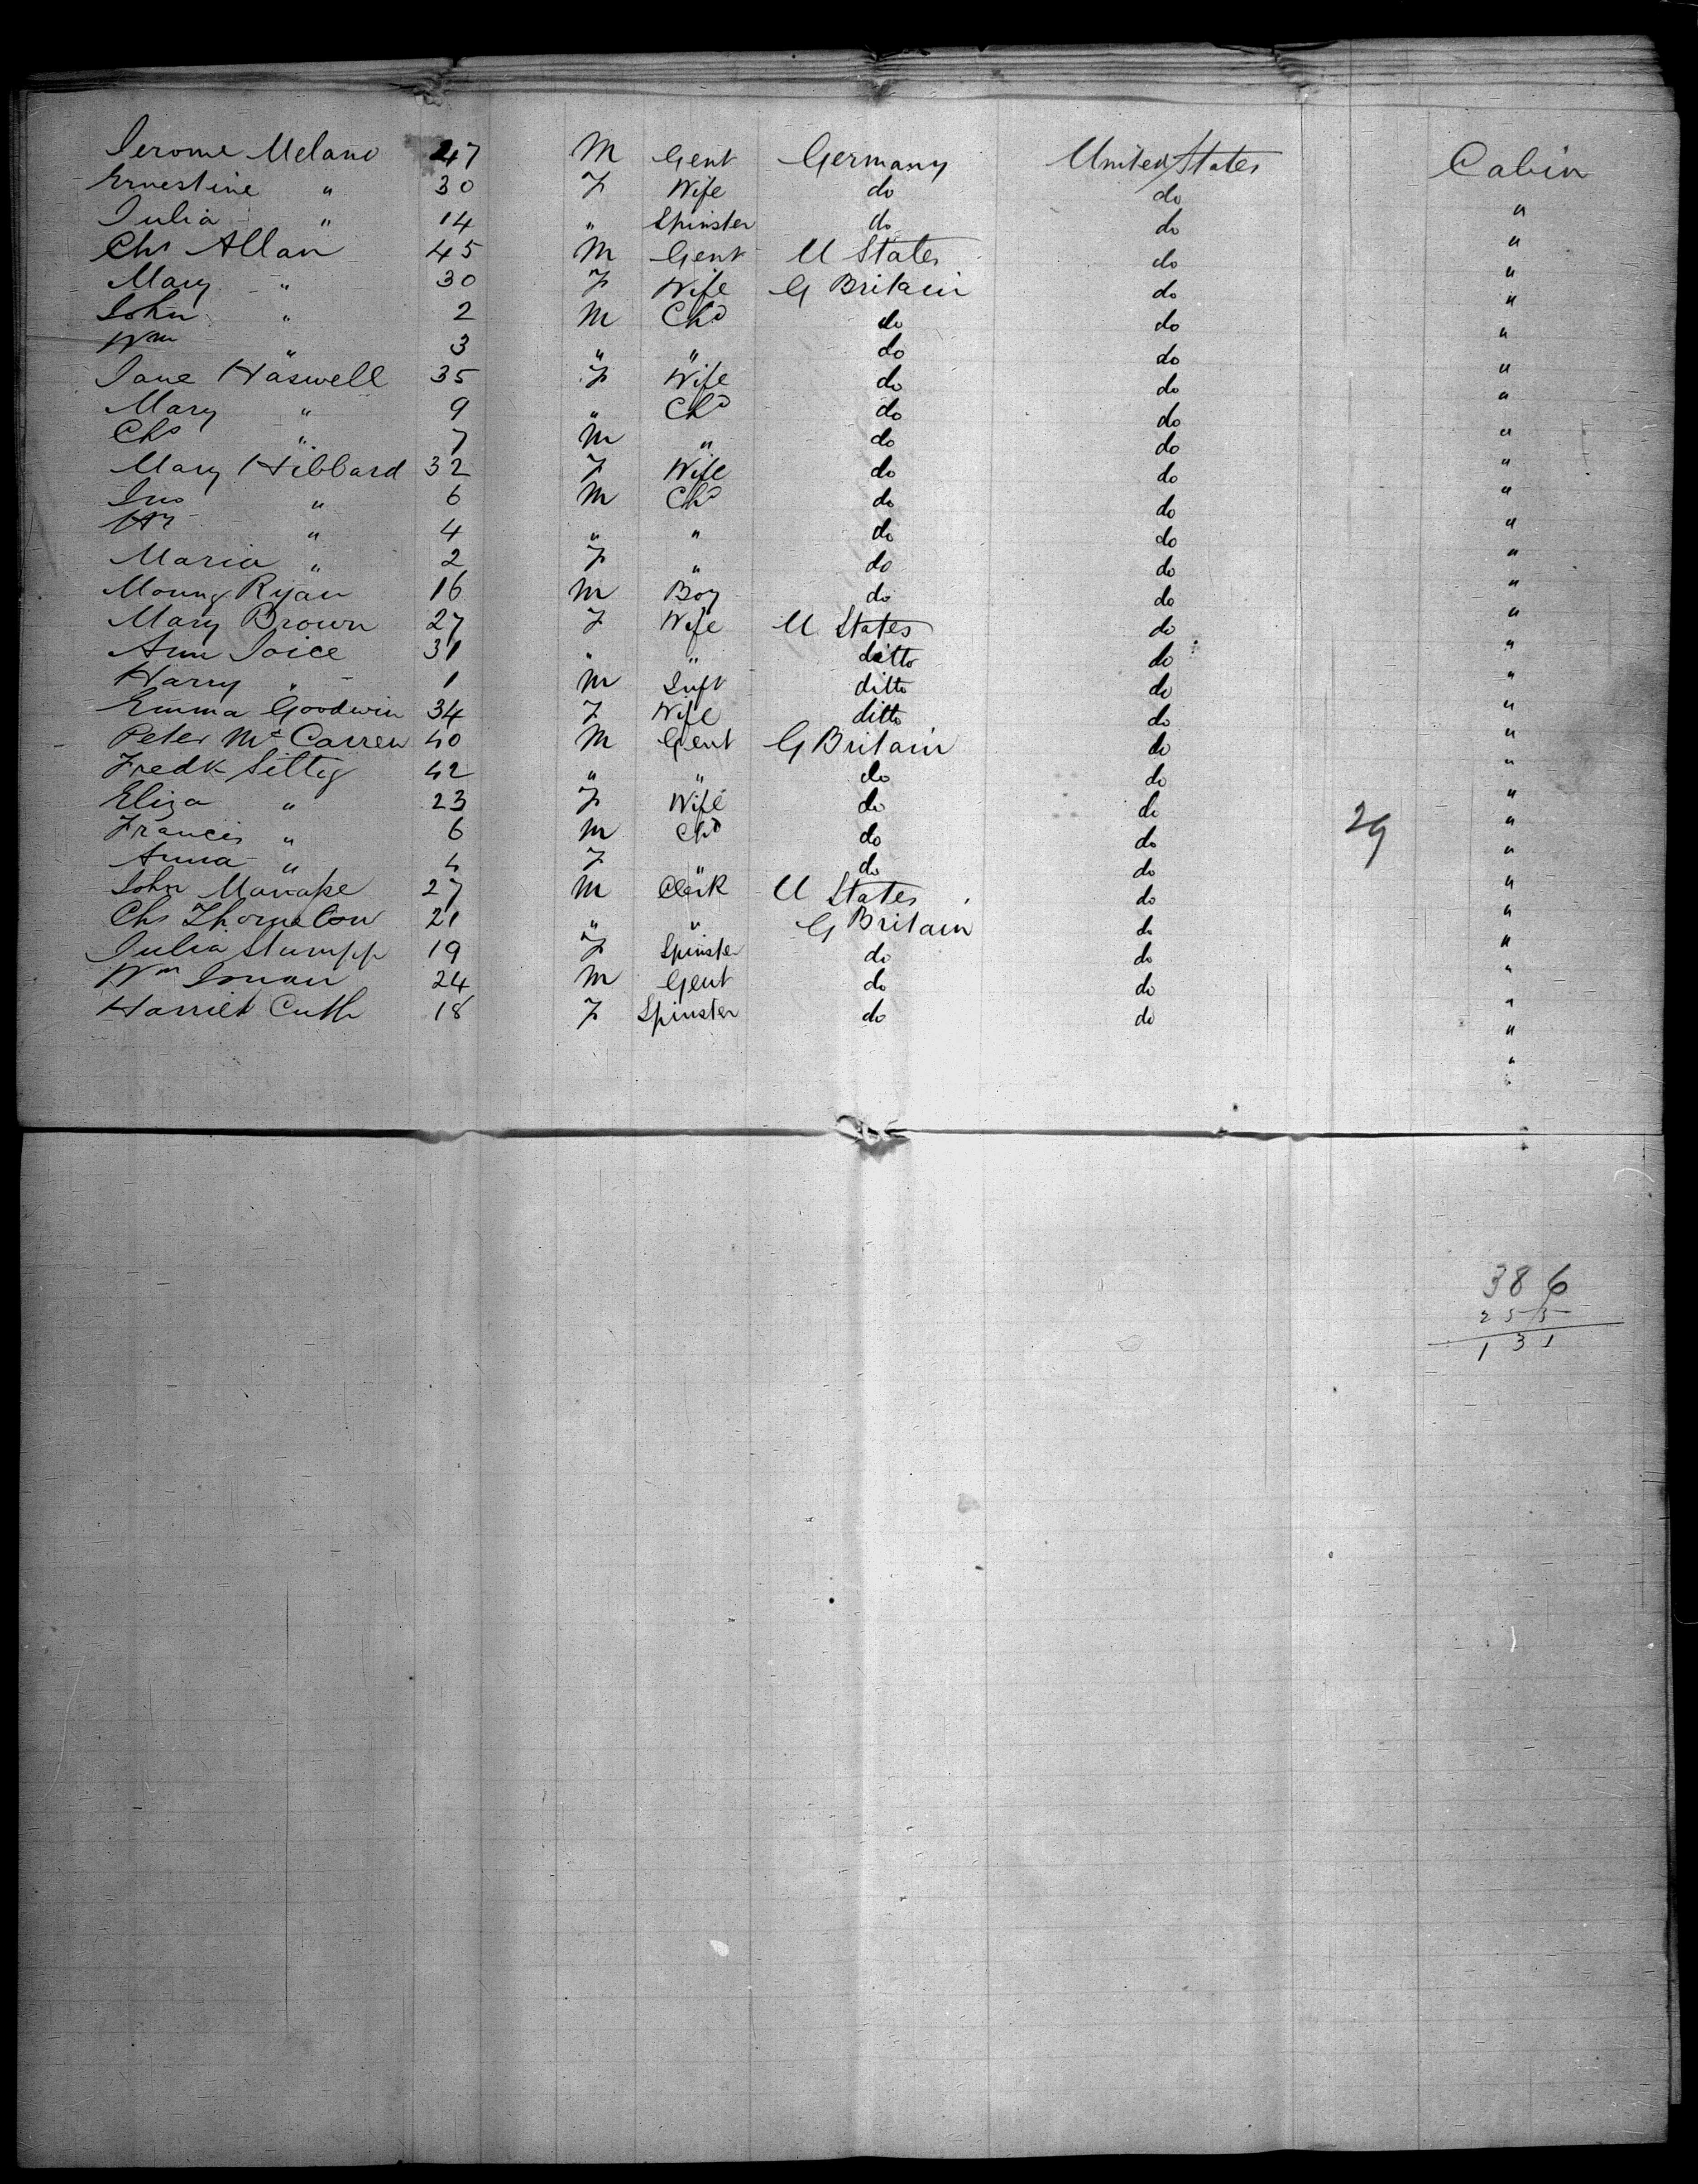 Jerome Melano 47 M Gent Germany United States Cabin
Ernestine " 30 F Wife do do "
Julia " 14 " Spinster do do "
Chs Allan 45 M Gent U States do "
Mary " 30 F Wife G Britain do "
John " 2 M Chd do do "
Wm " 3 " " do do "
Jane Haswell 35 F Wife do do "
Mary " 9 " Chd do do "
Chs " 7 M " do do "
Mary Hibbard 32 F Wife do do "
Jno " 6 M Chd do do "
Hy " 4 " " do do "
Maria " 2 F " do do "
Ryan 16 M Boy do do "
Mary Brown 27 F Wife U States do "
Ann Joice 31 " " ditto do "
Harry " 1 M Inft ditto do "
Emma Goodwin 34 F Wife ditto do "
Peter Mc Carren 40 M Gent G Britain do "
Fredk Sittig 42 " " do do "
Eliza " 23 F Wife do do "
Francis " 6 M Chd do do 29 "
Anna " 4 F " do do "
John 27 M Clerk U States do "
Chs Thornelow 21 " " G Britain do "
Julia Stumpp 19 F Spinster do do "
Wm Inman 24 M Gent do do "
Harriet Cuth 18 F Spinster do do "
"
"
386
255
131